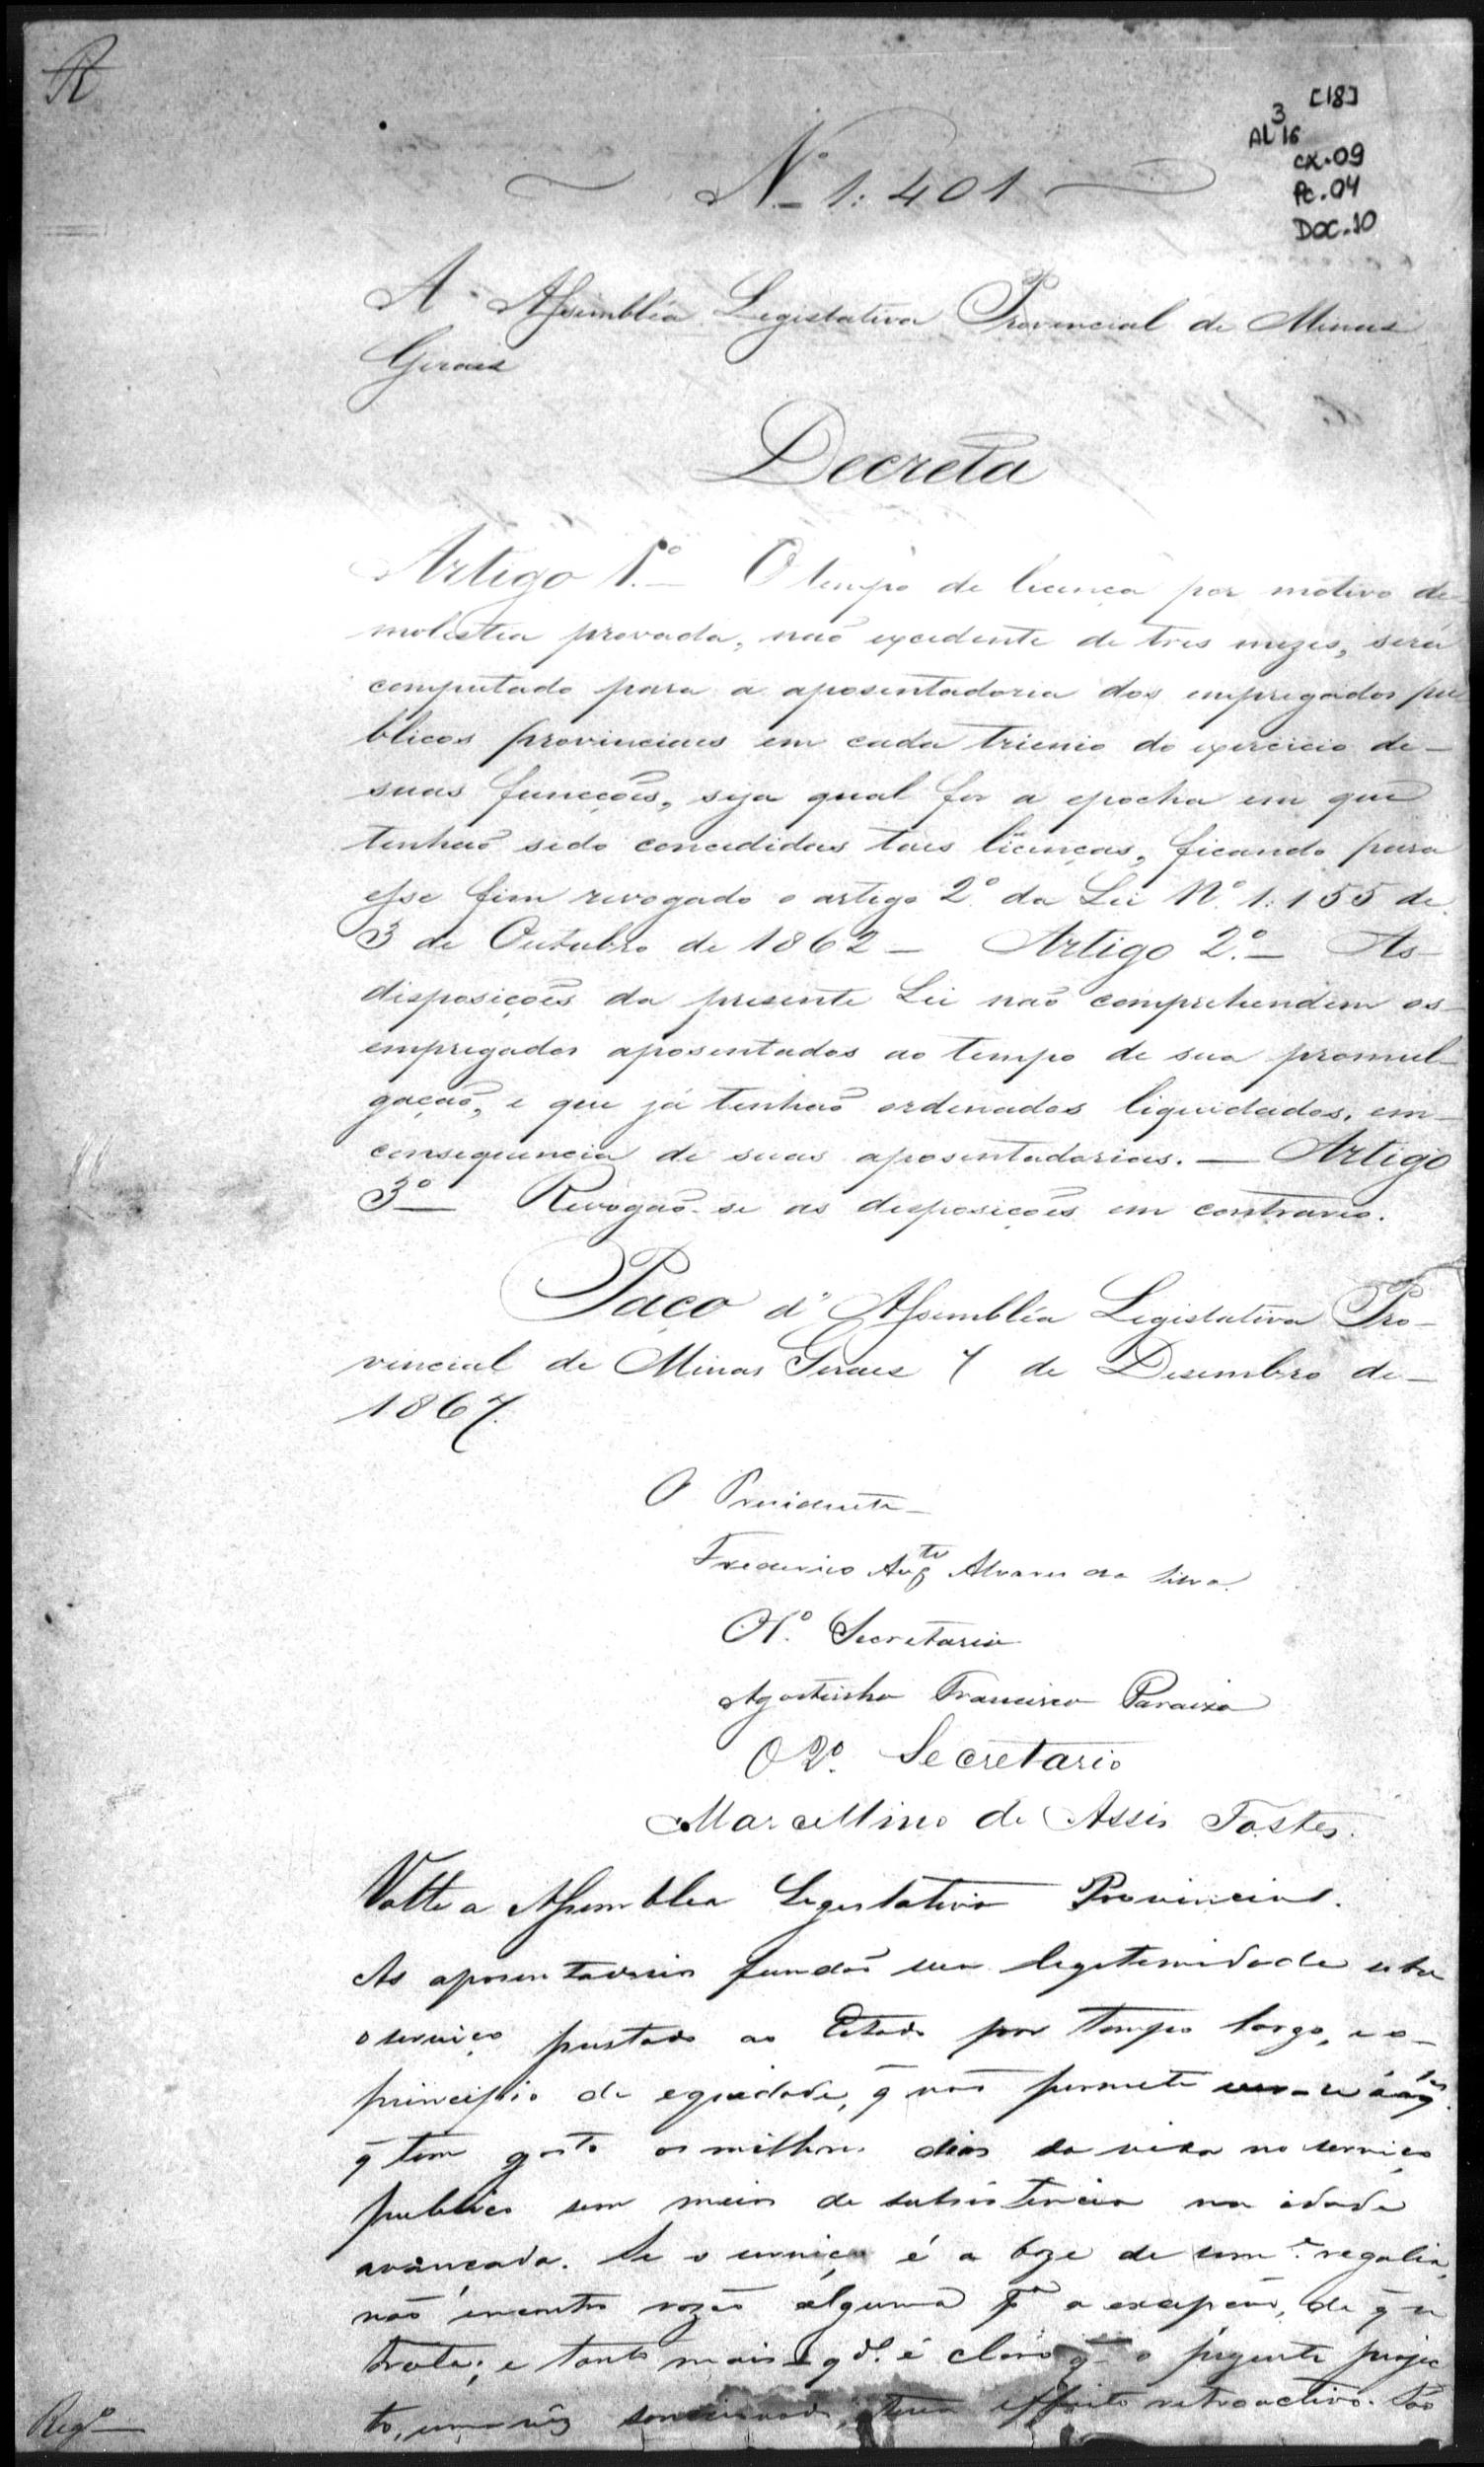 R
[18]
3
AL 16
CX.09
PC.04
DOC.10
Nº 1:401
A Assembléa Legislativa Provincial de Minas
Geraes
Decreta
Artigo 1.º O tempo de licença por motivo de
molestia provada, não excedente de tres mezes, será
computado para a aposentadoria dos empregados pu
blicos provinciaes em cada trienio do exercicio de
suas funcções, seja qual for a epocha em que
tenhão sido concedidas taes licenças, ficando para
esse fim revogado o artigo 2.º da Lei Nº 1:155 de
3 de Outubro de 1862 — Artigo 2.º — As
disposições da presente Lei não comprehendem os
empregados aposentados ao tempo de sua promul
gação, e que já tenhão ordenados liquidados, em
consequencia de suas aposentadorias. — Artigo
3º Revogão-se as disposições em contrario.
Paço d'Assembléa Legislativa Pro-
vincial de Minas Geraes 7 de Desembro de
1867.
O Presidente
Frederico Augto Alvares da Silva.
O 1.º Secretario
Agostinho Francisco Paraizo
O 2º. Secretario
Marcellino de Assis Tostes.
Volte a Assemblea Legislativa Provincial.
As aposentadorias fundão sua legitimidade sobre
o serviço prestado ao Estado por tempo largo, e o
principio de equidade, q̃ não permitte
q̃ tem gasto os milhores dias da vida no serviço
publico sem meios de subsistencia na idade
avancada. Se o serviço é a baze de uma regalia,
não encontro rozão alguma pª a excepção, de q̃ se
trata; e tanto mais qdº é claro q̃ o prezente projec
to, uma vez sanccionado, teria effeito retroactivo. São
Regº